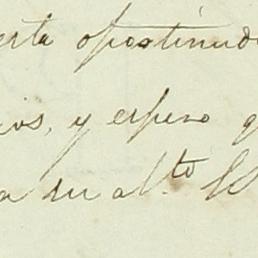 erta oportunida
ios, y espero q
a su al.to